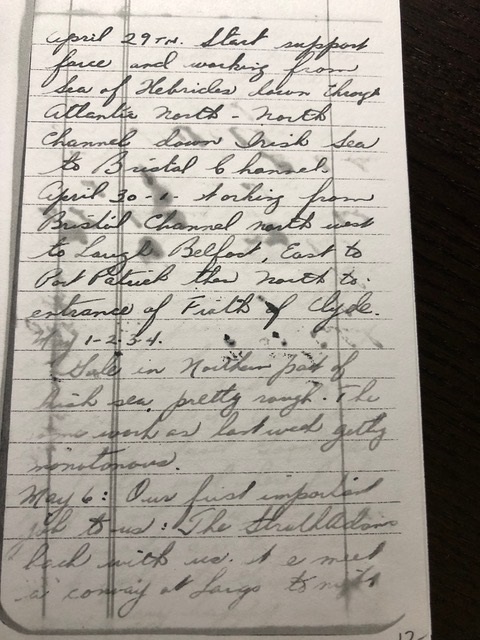 April 29TH. Start support
force and working from
Sea of Hebrides down through
Atlantic North - North
Channel down Irish Sea
to Bristol Channel.
April 30-1 Working from
Bristol Channel north west
to Laugh Belfast, East to
Port Patrick then North to
entrance of Firth of Clyde.
May 1-2-3-4.
Gale in Northern part of
Irish sea, pretty rough. The
same work as last week getting
monotonous.
May 6: Our first important
job to us: The
back with us. meet
a convoy at Largs to